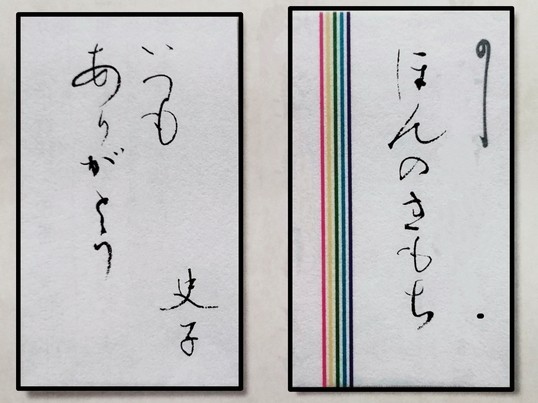 いつも
ありがとう
史子
ほんのきもち